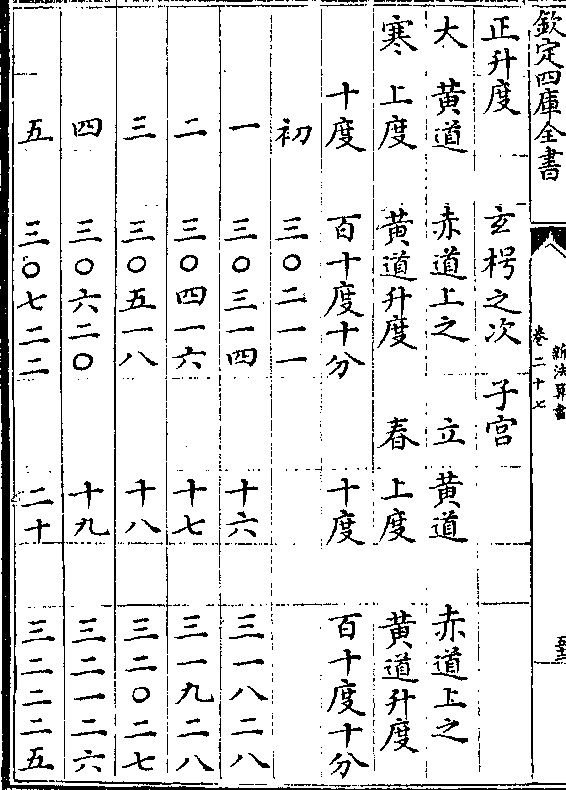 欽定四庫全書
新法算書
卷二十七
正升度 玄枵之次 子宮
大 黃道 赤道上之 立 黃道 赤道上之
寒 上度 黃道升度 春 上度 黃道升度
十度 百十度十分 十度 百十度十分
初 三〇二一一
一 三〇三一四 十六 三一八二八
二 三〇四一六 十七 三一九二八
三 三〇五一八 十八 三二〇二七
四 三〇六二〇 十九 三二一二六
五 三〇七二二 二十 三二二二五